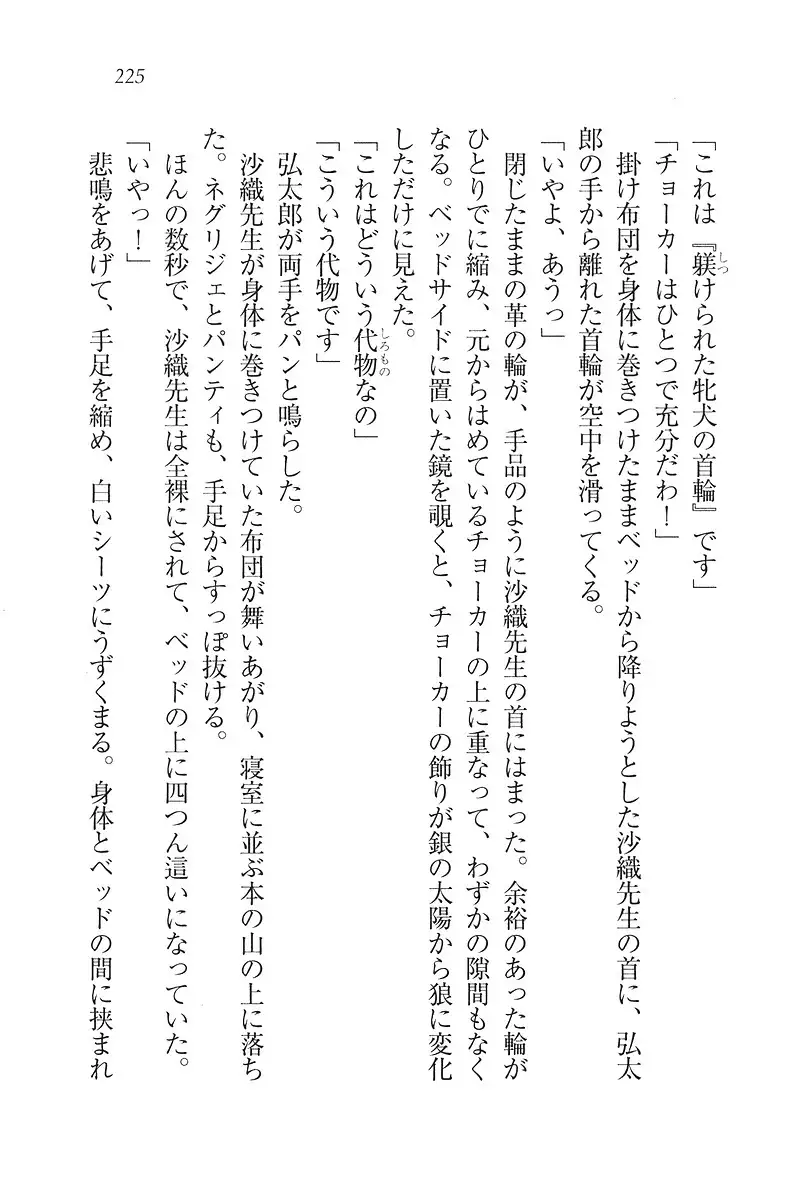 225
「これは『躾けられた牝犬の首輪』です」
「チョーカーはひとつで充分だわ！」
掛け布団を身体に巻きつけたままベッドから降りようとした沙織先生の首に、弘太
郎の手から離れた首輪が空中を滑ってくる。
「いやよ、あうっ」
閉じたままの革の輪が、手品のように沙織先生の首にはまった。余裕のあった輪が
ひとりでに縮み、元からはめているチョーカーの上に重なって、わずかの隙間もなく
なる。ベッドサイドに置いた鏡を覗くと、チョーカーの飾りが銀の太陽から狼に変化
しただけに見えた。
「これはどういう代物なの」
「こういう代物です」
弘太郎が両手をパンと鳴らした。
沙織先生が身体に巻きつけていた布団が舞いあがり、寝室に並ぶ本の山の上に落ち
た。ネグリジェとパンティも、手足からすっぽ抜ける。
ほんの数秒で、沙織先生は全裸にされて、ベッドの上に四つん這いになっていた。
「いやっ！」
悲鳴をあげて、手足を縮め、白いシーツにうずくまる。身体とベッドの間に挟まれ